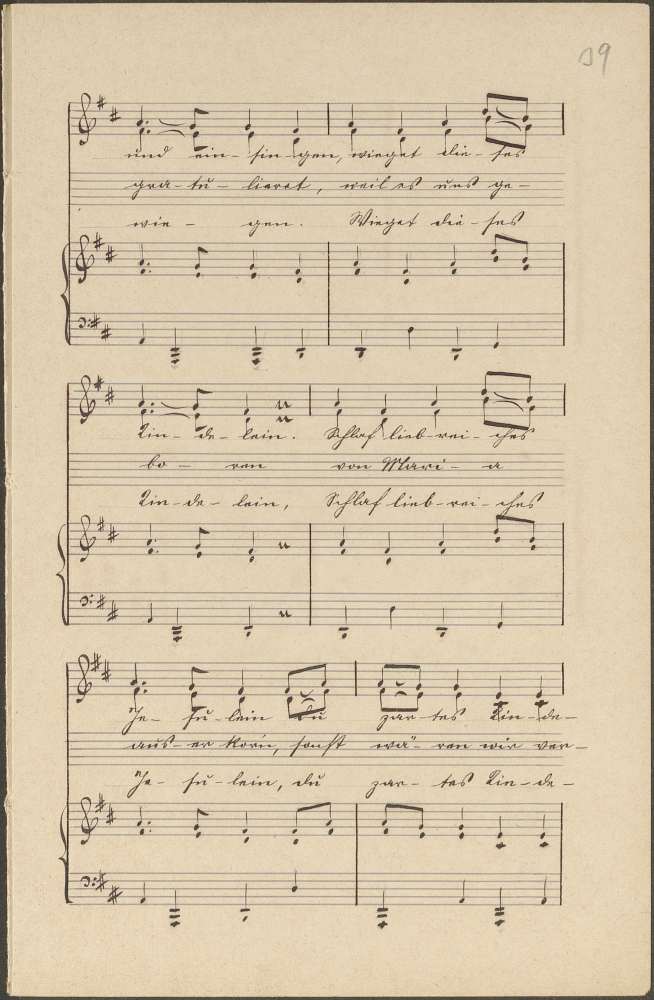 39
und ein- sin- gen, wieget die- ses
gra- tu- lieret, weil es uns ge-
wie- gen. Wieget die- ses
Kin- de- lein. Schlaf lieb- rei- ches
bo- ren von Mari- a
Kin- de- lein, Schlaf lieb- rei- ches
Je- su- lein du zar- tes Kin- de-
aus- er korn, sonst wä- ren wir ver-
Je- su- lein, du zar- tes Kin- de-